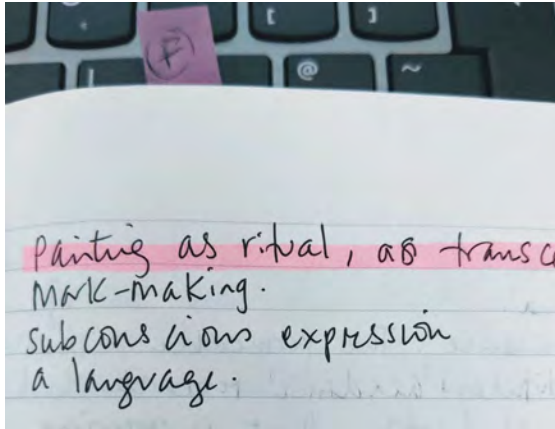 { [ } ]
F
" @ ~
Painting as ritual, as transc
Mark-making.
subconscious expression
a language.